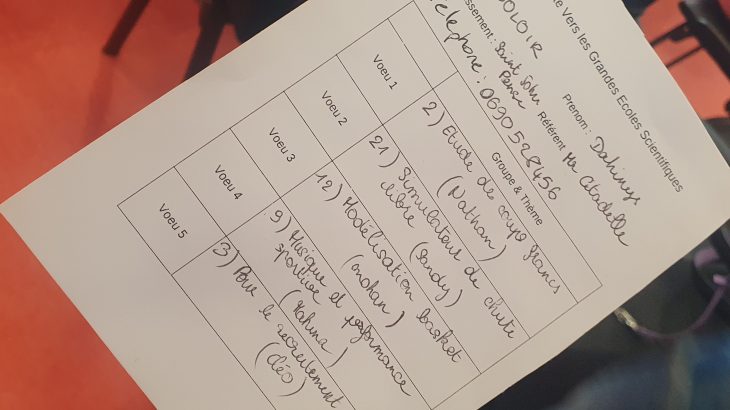 e Vers les Grandes Ecoles Scientifiques
OLOIR
Prenom : Dahinys
issement : Saint John Perse
Référent Mr Citadelle
elephone : 0690528456
Groupe & Thème
Voeu 1
2) Etude de coups francs
(Nathan)
Voeu 2
21) Simulateur de chute
libre (Sandy)
Voeu 3
12) Modélisation basket
(mohan)
Voeu 4
9) Musique et performance
sportive (Mahina)
Voeu 5
3) Pour le recrutement
(Cléo)